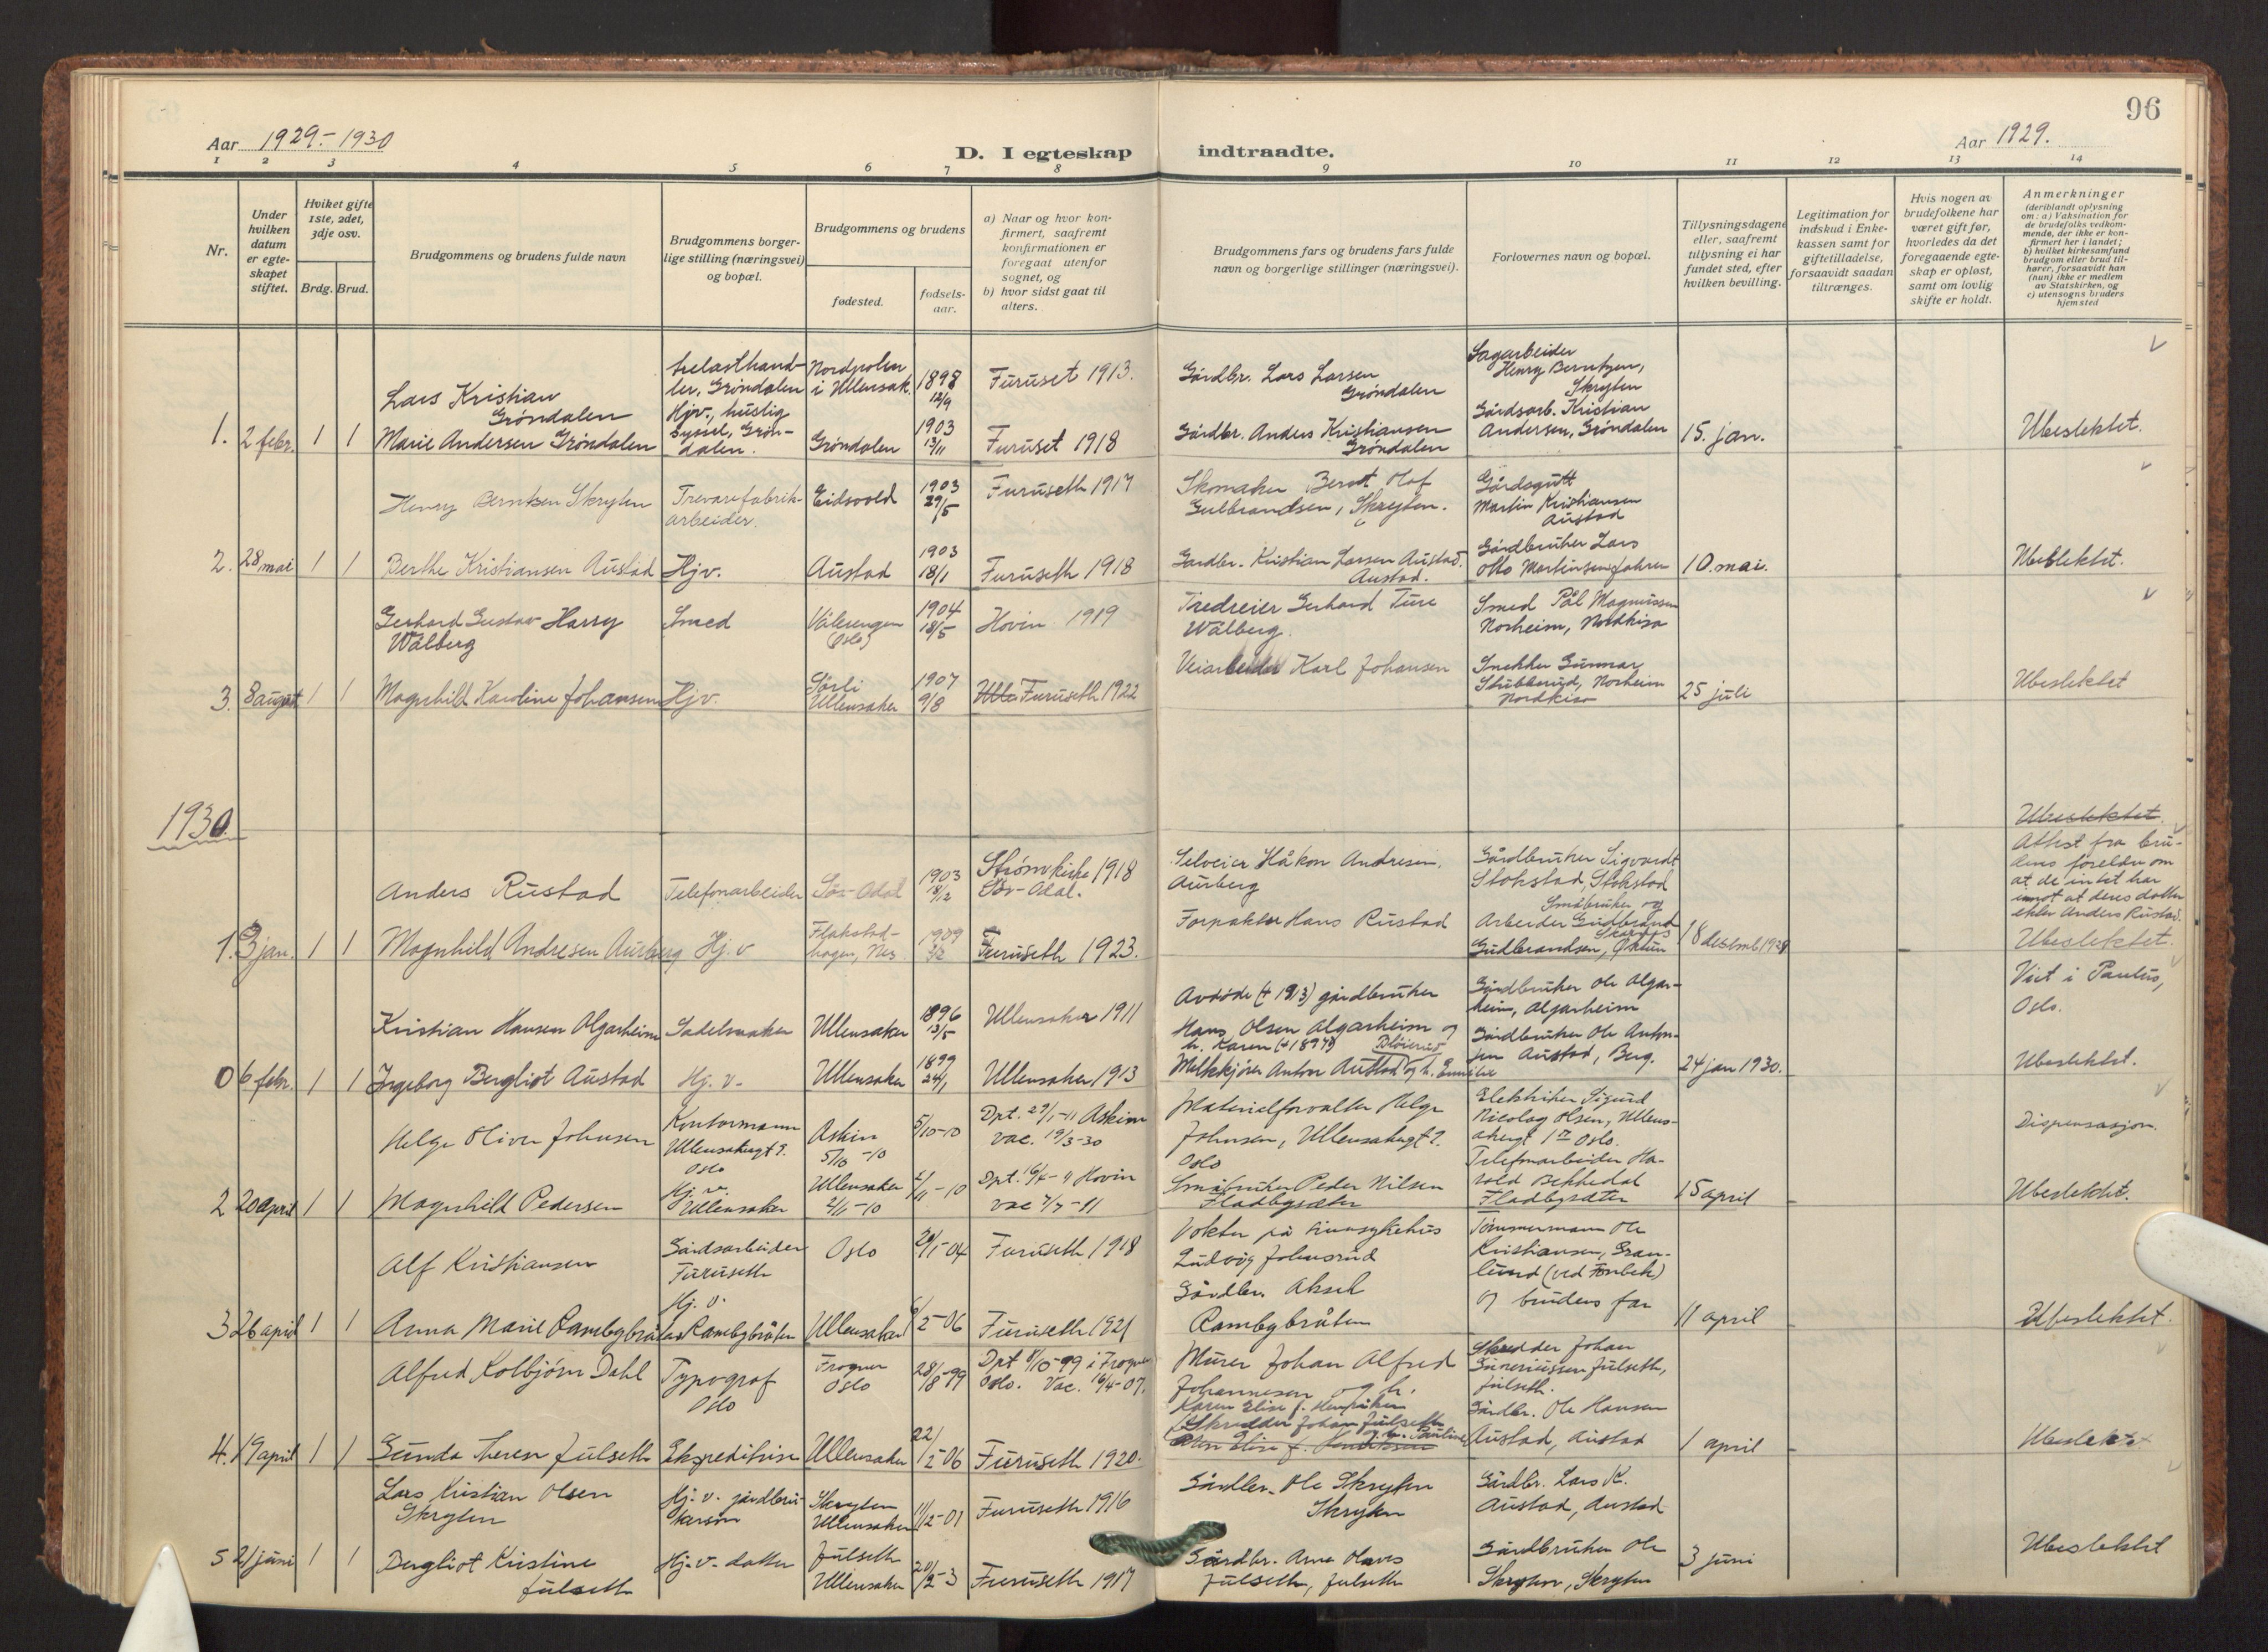 96
Aar 1929.-1930
D. I egteskap indtraadte.
Aar 1929.
1 2 3 4 5 6 7 8 9 10 11 12 13 14
Nr.
Under hvilken datum er egte-skapet stiftet.
Hviket gifte 1ste, 2det, 3dje osv.
Brdg. Brud.
Brudgommens og brudens fulde navn
Brudgommens borger-lige stilling (næringsvei) og bopæl.
Brudgommens og brudens
fødested.
fødsels-aar.
a) Naar og hvor kon-firmert, saafremt konfirmationen er foregaat utenfor sognet, og
b) hvor sidst gaat til alters.
Brudgommens fars og brudens fars fulde navn og borgerlige stillinger (næringsvei).
Forlovernes navn og bopæl.
Tillysningsdagene eller, saafremt tillysning ei har fundet sted, efter hvilken bevilling.
Legitimation for indskud i Enke-kassen samt for giftetilladelse, forsaavidt saadan tiltrænges.
Hvis nogen av brudefolkene har været gift før, hvorledes da det foregaaende egte-skap er opløst, samt om lovlig skifte er holdt.
Anmerkninger
(deriblandt oplysning om: a) Vaksination for de brudefolks vedkom-mende, der ikke er kon-firmert her i landet; b) hvilket kirkesamfund brudgom eller brud til-hører, forsaavidt han (hun) ikke er medlem av Statskirken, og c) utensogns bruders hjemsted
Lars Kristian Grøndalen
trelasthand-ler, Grøndalen
Nordpolen i Ullensak.
1898 12/9
Furuset 1913.
Gårdbr. Lars Larsen Grøndalen
Sagarbeider Henry Berntzen, Skryten
1. 2 febr. 1 1
Marie Andersen Grøndalen
Hjv., huslig syssel, Grøn-dalen.
Grøndalen
1903 13/11
Furuset 1918
Gårdbr. Anders Kristiansen Grøndalen
Gårdsarb. Kristian Andersen, Grøndalen
15. jan.
Ubeslektet.
Henry Berntsen Skryten
Trevarefabrik-arbeider.
Eidsvold
1903 29/5
Furuseth 1917
Skomaker Bernt Olaf Gulbrandsen, Skryten.
Gårdsgutt Martin Kristiansen Austad
2. 28 mai 1 1
Berthe Kristiansen Austad
Hjv.
Austad
1903 18/1
Furuseth 1918
Gardbr. Kristian Larsen Austad. Austad.
Gårdbruker Lars Otto Martinsen,
10. mai.
Ubeslektet.
Gerhard Gustav Harry Walberg
Smed
Vålerengen (Oslo)
1904 18/5
Hovin 1919
Tredreier Gerhard Ture Walberg.
Smed Pål Magnussen Norheim, Nordkisa
3. 8 august 1 1
Magnhild Karoline Johansen
Hjv.
Sørli Ullensaker
1907 9/8
Furuseth 1922
Veiarbeider Karl Johansen
Snekker Gunnar Stubberud, Norheim Nordkisa
25 juli
Ubeslektet
1930.
Anders Rustad
Telefonarbeider
Sør-Odal
1903 18/2
Strøm kirke 1918 Sør-Odal.
Selveier Håkon Andresen. Aurberg
Gårdbruker Sigvardt Stokstad, Stokstad
Ubeslektet.
Attest fra bru-dens foreldre om at de intet har imot at deres datter ekter Anders Rustad.
1. 3 jan. 1 1
Magnhild Andresen Aurberg
Hj. v
Flakstad-hagen, Nes
Furuseth 1923.
Forpakter Hans Rustad
Småbruker og Arbeider Gudbrand Gudbrandsen,
18 desemb 1929
Ubeslektet.
Kristian Hansen Algarheim
Sadelmaker
Ullensaker
1896 13/5
Ullensaker 1911
Avdøde (+ 1913) gårdbruker Hans Olsen Algarheim og h. Karen (+1897)
Gårdbruker Ole Algar-heim, Algarheim
Viet i Paulus, Oslo.
0 6 febr. 1 1
Ingeborg Bergliot Austad
Hj. v.
Ullensaker
1899 24/1
Ullensaker 1913
Melkkjører Anton Austad og h.
Gårdbruker Ole Anton-sen Austad, Berg.
24 jan 1930.
Ubeslektet.
Helge Oliver Johnsen
Kontormann Ullensakergt 7. Oslo
Askim 5/10-10
5/10-10
Dpt. 29/1-11 Askim vac. 19/3-30
Materialforvalter Helge Johnsen, Ullensakergt 7. Oslo
Elektriker Sigurd Nicolay Olsen, Ullens-akergt Oslo.
Dispensasjon.
2 20 april 1 1
Magnhild Pedersen
Hj. v. Ullensaker
Ullensaker 2/11-10
2/11-10
Dpt. 16/4-11 Hovin vac 7/7-11
Småbruker Peder Nilsen Fladbysæter
Telefonarbeider Ha-rald Bekkedal Fladbysæter
15 april
Ubeslektet.
Alf Kristiansen
Gårdsarbeider Furuseth
Oslo
29/1-04
Furuseth 1918
Vokter på sinnsykehus Ludvig Johnsrud
Tømmermann Ole Kristiansen, Gran-lund (ved Fonbek)
3 26 april 1 1
Anna Marie Rambybråten
Hj. v. Rambybråten
Ullensaker
6/2-06
Furuseth 1921
Gårdbr. Aksel Rambybråten
og brudens far
11 april
Ubeslektet.
Alfred Kolbjørn Dahl
Typograf Oslo
Frogner Oslo
28/8-99
Dpt 8/10-99 i Frogner Oslo. Vac. 16/4-07.
Murer Johan Alfred Johannesen og h. Karen Elise f. Henriksen
Skredder Johan Gunerius­sen Julseth, Julseth.
4. 19 april 1 1
Gunda Therese Julseth
Ekspeditrise
Ullensaker
22/2-06
Furuseth 1920.
Skredder Johan Julseth og h. Pauline
Gårdbr. Ole Hansen Austad, Austad
1 april
Ubeslektet
Lars Kristian Olsen Skryten
Hj. v. gårdbru-kersøn
Skryten Ullensaker
11/2-01
Furuseth 1916
Gårdbr. Ole Skryten Skryten
Gårdbr. Lars K. Austad, Austad
5 21 juni 1 1
Bergliot Kristine Julseth
Hj. v. datter
Julseth Ullensaker
Furuseth 1917
Gårdbr. Arne Olaves Julseth, Julseth
Gårdbruker Ole Skryten, Skryten
3 juni
Ubeslektet